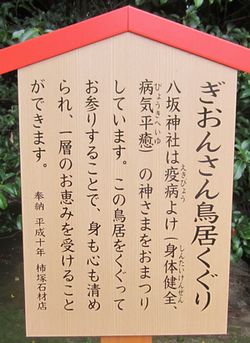 ぎおんさん鳥居くぐり
八坂神社は疫病よけ(身体健全、
病気平癒)の神さまをおまつり
しています。この鳥居をくぐって
お参りすることで、身も心も清め
られ、一層のお恵みを受けること
ができます。
奉納 平成十年 柿塚石材店